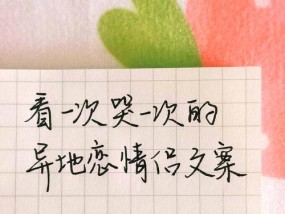 看一次哭一次的
异地恋情侣文案